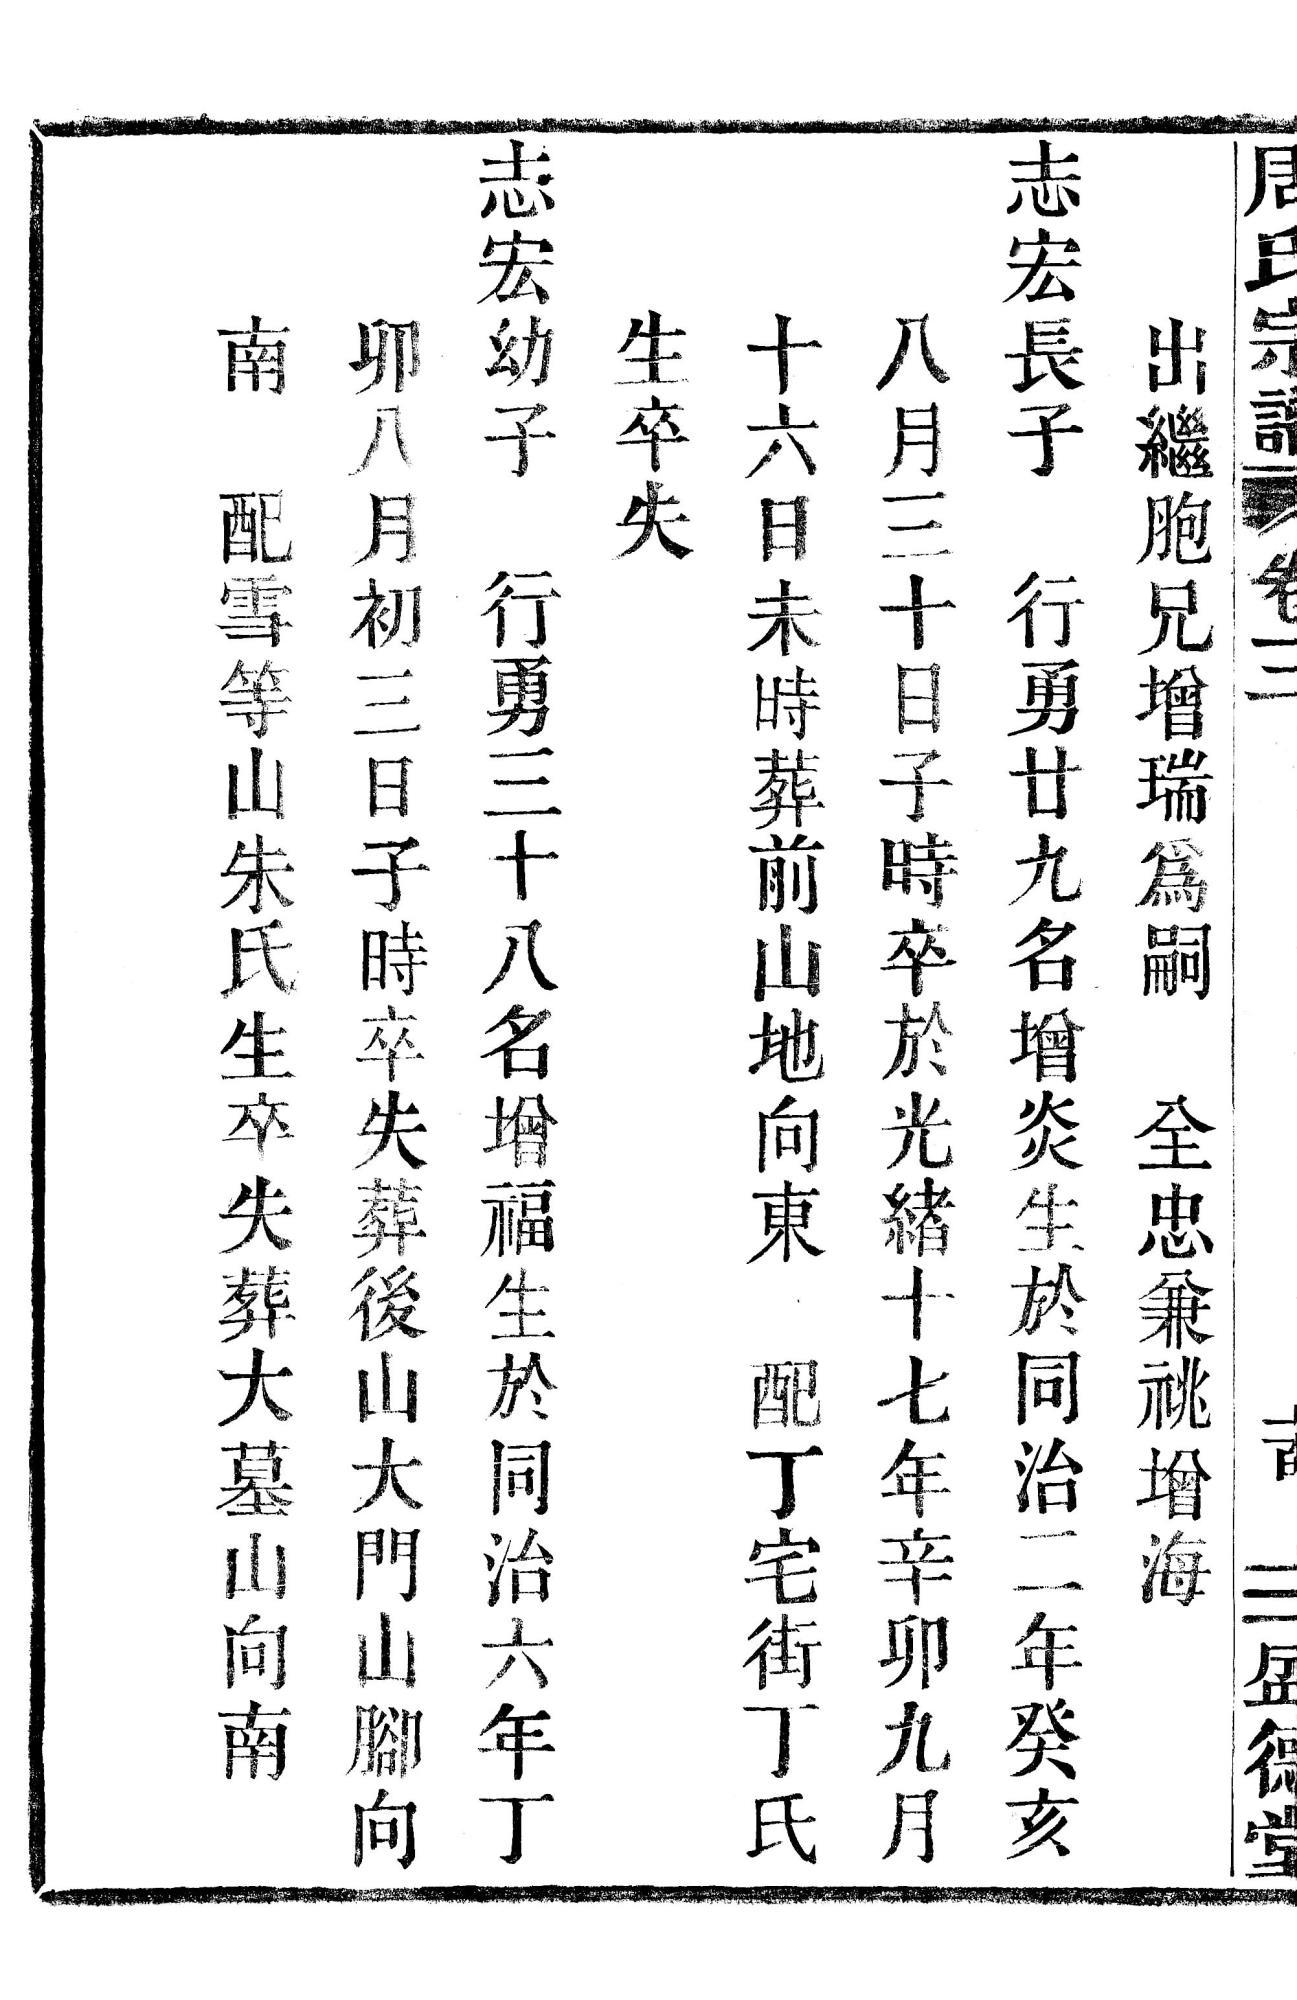 周氏宗譜
卷三
盈德堂
出繼胞兄增瑞爲嗣　全忠兼祧增海
志宏長子　行勇廿九名增炎生於同治二年癸亥
八月三十日子時卒於光緒十七年辛卯九月
十六日未時葬前山地向東　配丁宅街丁氏
生卒失
志宏幼子　行勇三十八名增福生於同治六年丁
卯八月初三日子時卒失葬後山大門山腳向
南　配雪等山朱氏生卒失葬大墓山向南